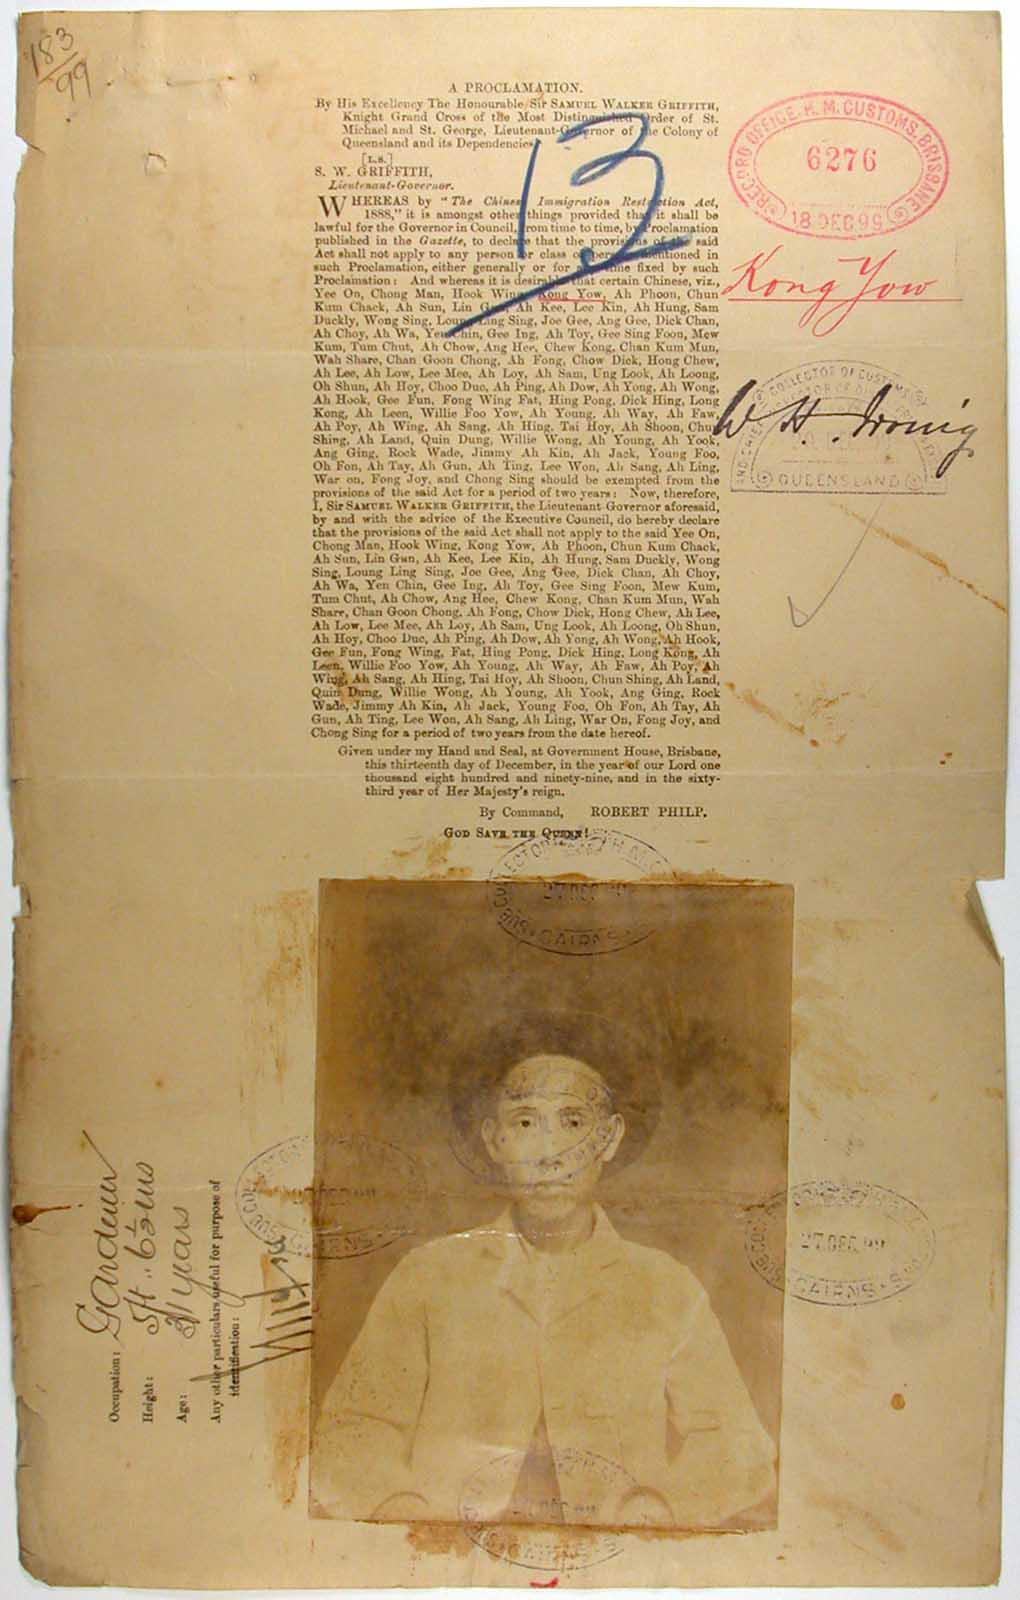 183
99
A PROCLAMATION.
By His Excellency The Honourable Sir SAMUEL WALKER GRIFFITH,
Knight Grand Cross of the Most Distinguished Order of St.
Michael and St. George, Lieutenant-Governor of the Colony of
Queensland and its Dependencies.
[L.S.]
S. W. GRIFFITH,
Lieutenant-Governor.
WHEREAS by "The Chinese Immigration Restriction Act,
1888," it is amongst other things provided that it shall be
lawful for the Governor in Council, from time to time, by Proclamation
published in the Gazette, to declare that the provisions of the said
Act shall not apply to any person or class of persons mentioned in
such Proclamation, either generally or for any time fixed by such
Proclamation: And whereas it is desirable that certain Chinese, viz.,
Yee On, Chong Man, Hook Wing, Kong Yow, Ah Phoon, Chun
Kum Chack, Ah Sun, Lin Gun, Ah Kee, Lee Kin, Ah Hung, Sam
Duckly, Wong Sing, Loung Ling Sing, Joe Gee, Ang Gee, Dick Chan,
Ah Choy, Ah Wa, Yen Chin, Gee Ing, Ah Toy, Gee Sing Foon, Mew
Kum, Tum Chut, Ah Chow, Ang Hee, Chew Kong, Chan Kum Mun,
Wah Share, Chan Goon Chong, Ah Fong, Chow Dick, Hong Chew,
Ah Lee, Ah Low, Lee Mee, Ah Loy, Ah Sam, Ung Look, Ah Loong,
Oh Shun, Ah Hoy, Choo Duc, Ah Ping, Ah Dow, Ah Yong, Ah Wong,
Ah Hook, Gee Fun, Fong Wing Fat, Hing Pong, Dick Hing, Long
Kong, Ah Leen, Willie Foo Yow, Ah Young, Ah Way, Ah Faw,
Ah Poy, Ah Wing, Ah Sang, Ah Hing, Tai Hoy, Ah Shoon, Chun
Shing, Ah Land, Quin Dung, Willie Wong, Ah Young, Ah Yook,
Ang Ging, Rock Wade, Jimmy Ah Kin, Ah Jack, Young Foo,
Oh Fon, Ah Tay, Ah Gun, Ah Ting, Lee Won, Ah Sang, Ah Ling,
War on, Fong Joy, and Chong Sing should be exempted from the
provisions of the said Act for a period of two years: Now, therefore,
I, Sir SAMUEL WALKER GRIFFITH, the Lieutenant-Governor aforesaid,
by and with the advice of the Executive Council, do hereby declare
that the provisions of the said Act shall not apply to the said Yee On,
Chong Man, Hook Wing, Kong Yow, Ah Phoon, Chun Kum Chack,
Ah Sun, Lin Gun, Ah Kee, Lee Kin, Ah Hung, Sam Duckly, Wong
Sing, Loung Ling Sing, Joe Gee, Ang Gee, Dick Chan, Ah Choy,
Ah Wa, Yen Chin, Gee Ing, Ah Toy, Gee Sing Foon, Mew Kum,
Tum Chut, Ah Chow, Ang Hee, Chew Kong, Chan Kum Mun, Wah
Share, Chan Goon Chong, Ah Fong, Chow Dick, Hong Chew, Ah Lee,
Ah Low, Lee Mee, Ah Loy, Ah Sam, Ung Look, Ah Loong, Oh Shun,
Ah Hoy, Choo Duc, Ah Ping, Ah Dow, Ah Yong, Ah Wong, Ah Hook,
Gee Fun, Fong Wing, Fat, Hing Pong, Dick Hing, Long Kong, Ah
Leen, Willie Foo Yow, Ah Young, Ah Way, Ah Faw, Ah Poy, Ah
Wing, Ah Sang, Ah Hing, Tai Hoy, Ah Shoon, Chun Shing, Ah Land,
Quin Dung, Willie Wong, Ah Young, Ah Yook, Ang Ging, Rock
Wade, Jimmy Ah Kin, Ah Jack, Young Foo, Oh Fon, Ah Tay, Ah
Gun, Ah Ting, Lee Won, Ah Sang, Ah Ling, War On, Fong Joy, and
Chong Sing for a period of two years from the date hereof.
Given under my Hand and Seal, at Government House, Brisbane,
this thirteenth day of December, in the year of our Lord one
thousand eight hundred and ninety-nine, and in the sixty-
third year of Her Majesty's reign.
By Command, ROBERT PHILP.
GOD SAVE THE QUEEN!
13
RECORD OFFICE. H. M. CUSTOMS. BRISBANE
6276
18 DEC 99
Kong Yow
COLLECTOR OF CUSTOMS
QUEENSLAND
W. H. Irving
SUB COLLECTOR H.M.C
27 DEC 99
CAIRNS
SUB COLLECTOR
SUB COLLECTOR
27 DEC 99
CAIRNS
CAIRNS
Occupation: Gardener
Height: 5ft. 6½ins
Age: 31 years
Any other particulars useful for purpose of
identification: